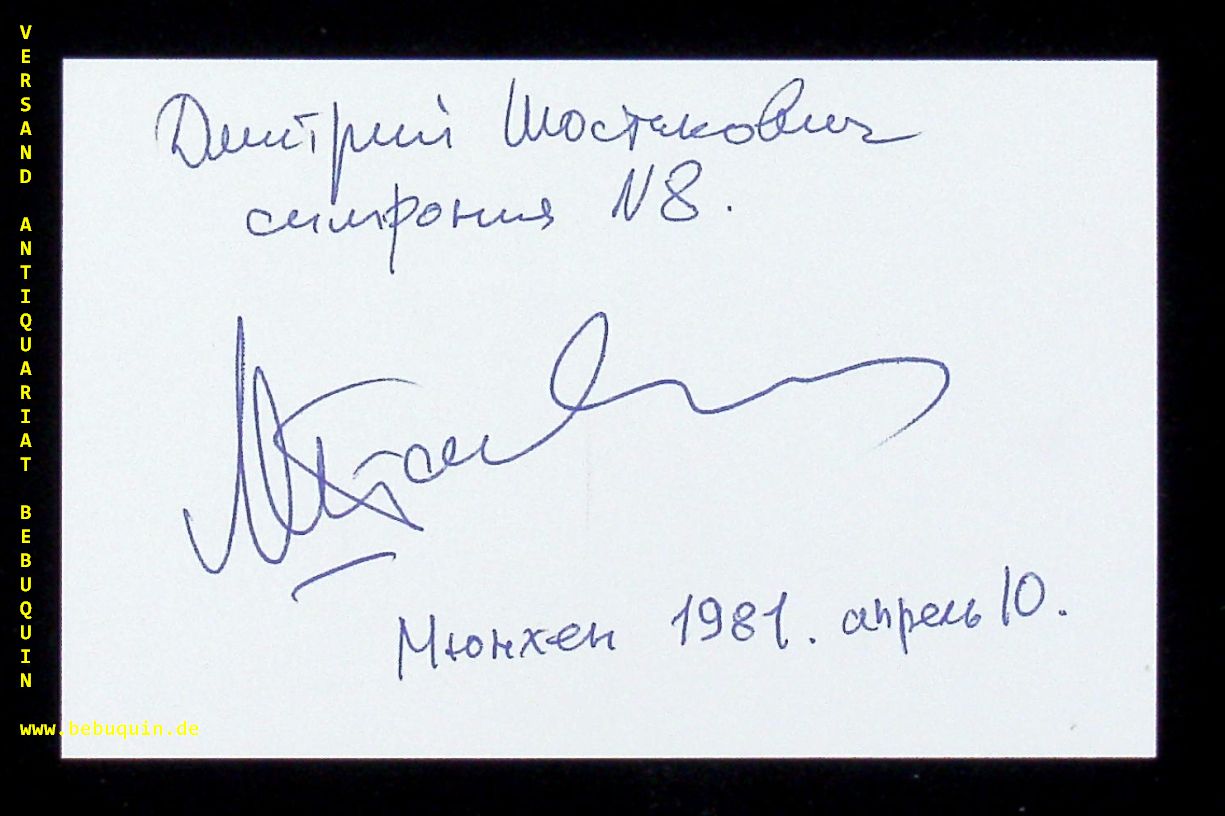 Дмитрий Шостакович
симфония N8.
Мюнхен 1981. апрель 10.
VERSAND ANTIQUARIAT BEBUQUIN
www.bebuquin.de